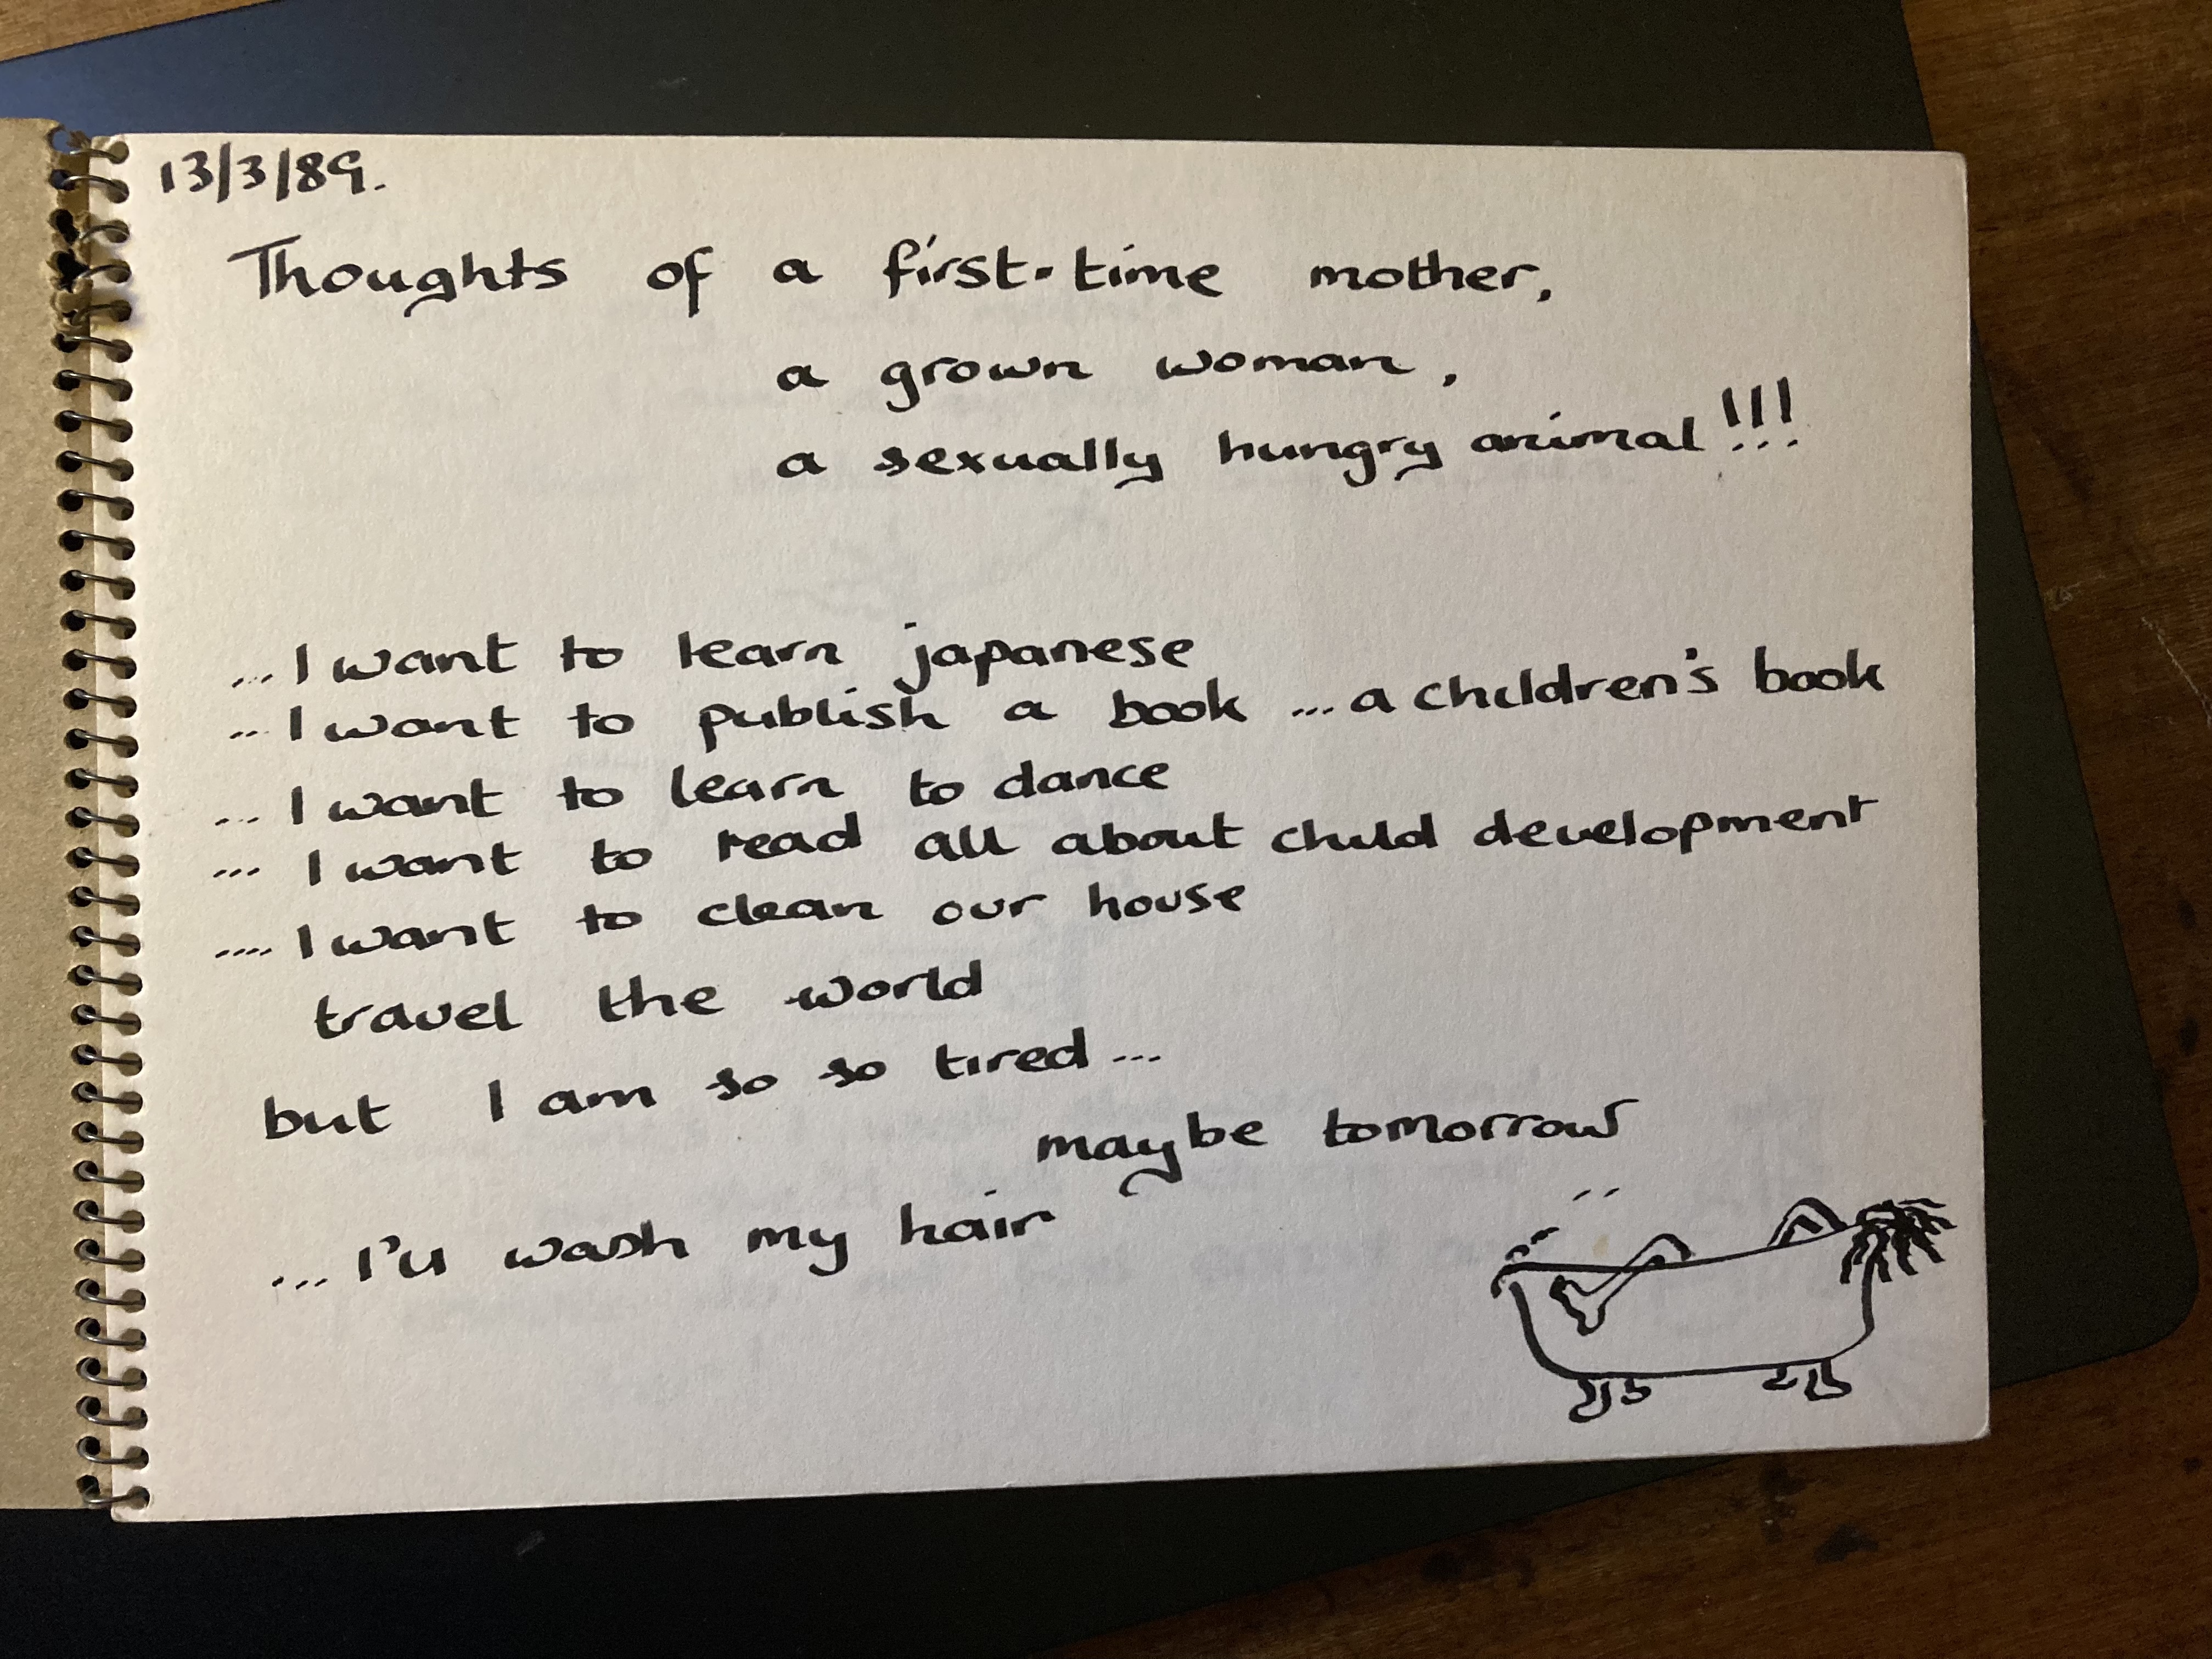 13/3/89.
Thoughts of a first-time mother,
a grown woman,
a sexually hungry animal!!!
...I want to learn japanese
...I want to publish a book ...a children's book
...I want to learn to dance
... I want to read all about child development
....I want to clean our house
travel the world
but I am so so tired...
maybe tomorrow
...I'll wash my hair